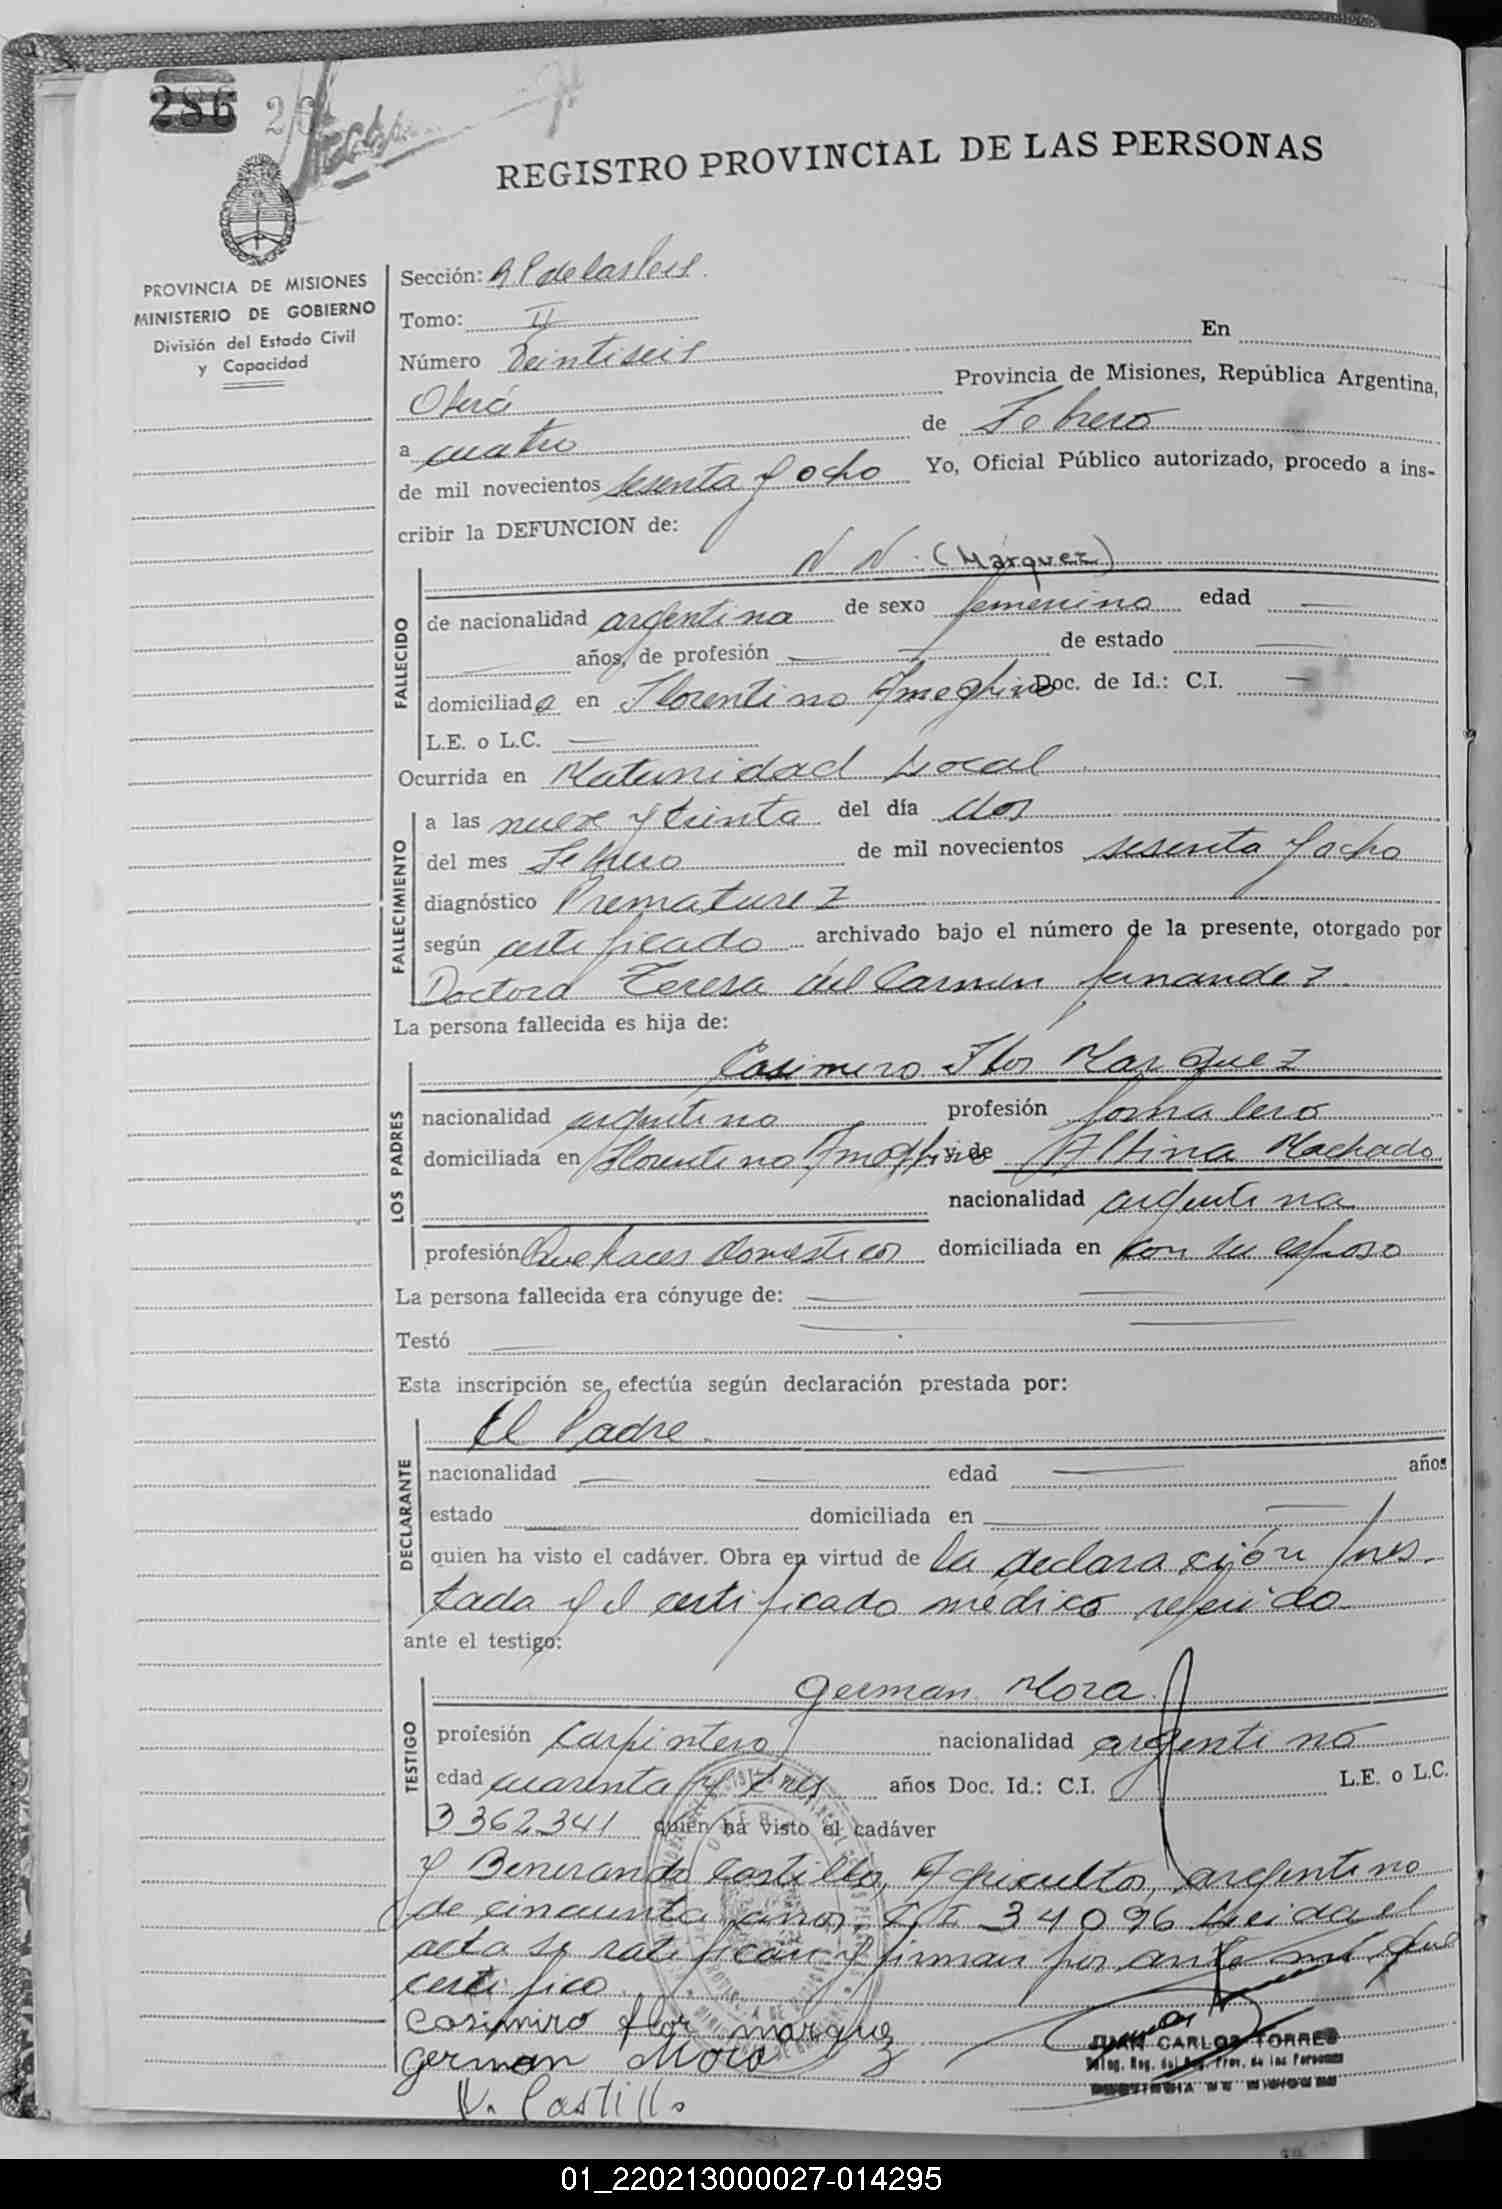 286 26
REGISTRO PROVINCIAL DE LAS PERSONAS
PROVINCIA DE MISIONES
MINISTERIO DE GOBIERNO
División del Estado Civil
y Capacidad
Sección: R. P. de las Pers.
Tomo: II
Número Veintiseis En
Oberá Provincia de Misiones, República Argentina,
a cuatro de Febrero
de mil novecientos sesenta y ocho Yo, Oficial Público autorizado, procedo a ins-
cribir la DEFUNCION de:
N. N. (Márquez)
FALLECIDO
de nacionalidad argentina de sexo femenino edad —
— años, de profesión — de estado —
domiciliada en Florentino Ameghino Doc. de Id.: C.I. —
L.E. o L.C. —
Ocurrida en Maternidad Local.
FALLECIMIENTO
a las nueve y treinta del día dos
del mes Febrero de mil novecientos sesenta y ocho
diagnóstico Prematurez
según certificado archivado bajo el número de la presente, otorgado por
Doctora Teresa del Carmen Fernandez.
La persona fallecida es hija de:
LOS PADRES
Casimiro Flor Marquez
nacionalidad argentino profesión Jornalero
domiciliada en Florentino Ameghino y de Albina Machado
nacionalidad argentina
profesión Quehaceres Domésticos domiciliada en con su esposo
La persona fallecida era cónyuge de: —
Testó —
Esta inscripción se efectúa según declaración prestada por:
DECLARANTE
El Padre.
nacionalidad — edad — años
estado — domiciliada en —
quien ha visto el cadáver. Obra en virtud de la declaración pres-
tada y el certificado médico referido
ante el testigo:
TESTIGO
German Mora.
profesión Carpintero nacionalidad argentino
edad cuarenta y tres años Doc. Id.: C.I. L.E. o L.C.
3362341 quien ha visto el cadáver
y Benerando Castillo, Agricultor, argentino
de cincuenta años, 34096 Leida el
acta se ratifican y firman por ante mí que
certifico.
Casimiro flor marquez
German Mora
V. Castillo
JUAN CARLOS TORRES
01_220213000027-014295